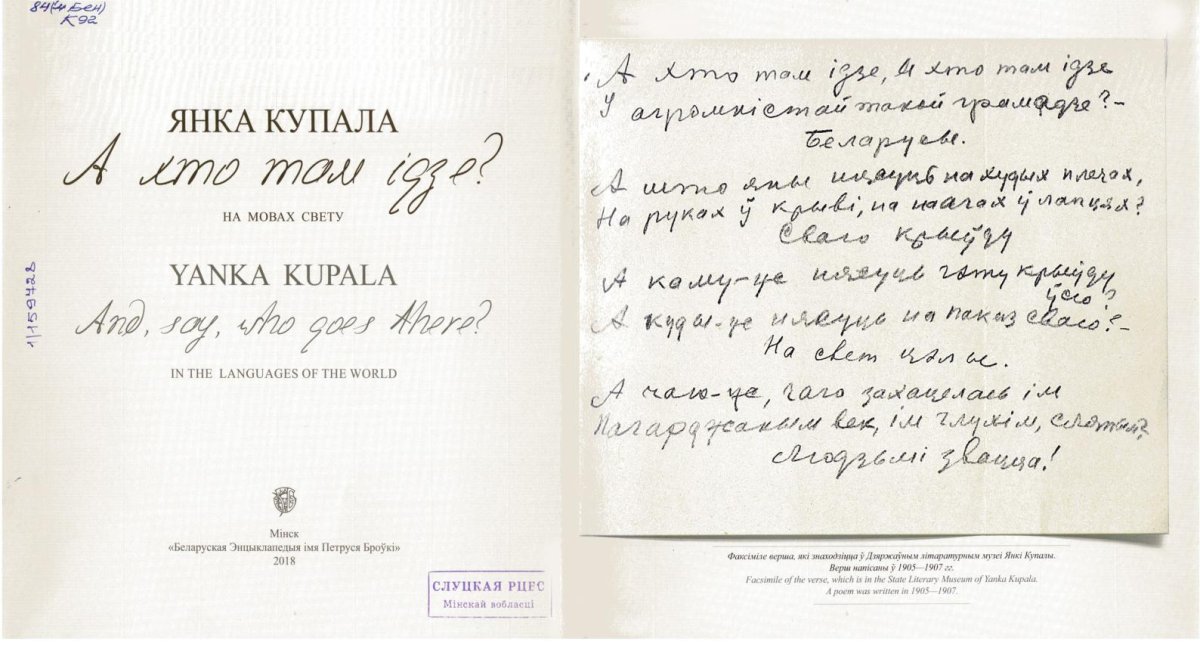 84(4Беи)
К92
ЯНКА КУПАЛА
А хто там ідзе?
НА МОВАХ СВЕТУ
YANKA KUPALA
And, say, who goes there?
IN THE LANGUAGES OF THE WORLD
1/159428
Мінск
«Беларуская Энцыклапедыя імя Петруся Броўкі»
2018
СЛУЦКАЯ РЦБС
Мінскай вобласці
А хто там ідзе, а хто там ідзе
У агромністай такой грамадзе?–
Беларусы.
А што яны нясуць на худых плечах,
На руках ў крыві, на нагах ў лапцях?
Сваю крыўду
А каму-це нясуць гэту крыўду
ўсю?
А куды-це нясуць на паказ сваю?–
На свет цэлы.
А чаго-це, чаго захацелась ім
Пагарджаным век, ім глухім, сляпым?
Людзьмі звацца!
Факсіміле верша, які знаходзіцца ў Дзяржаўным літаратурным музеі Янкі Купалы.
Верш напісаны ў 1905—1907 гг.
Facsimile of the verse, which is in the State Literary Museum of Yanka Kupala.
A poem was written in 1905—1907.